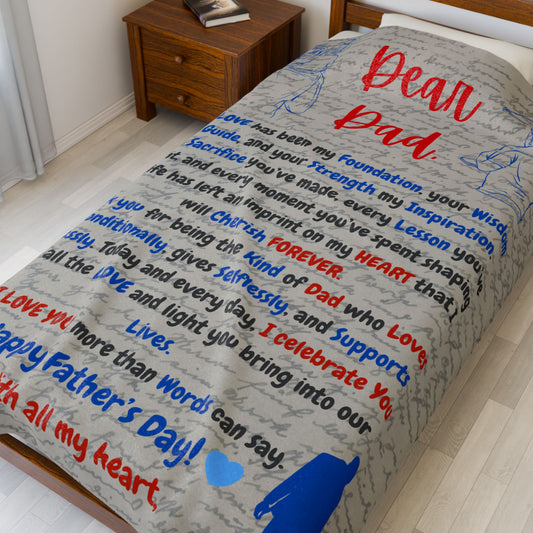 Dear
Dad,
LOVE has been my Foundation, your Wisdom
Guide, and your Strength my Inspiration
Sacrifice you've made, every Lesson you've
and every moment you've spent shaping
has left an imprint on my HEART that I
will Cherish FOREVER.
you for being the Kind of Dad who Loves
gives Selflessly, and Supports
Today and every day, I celebrate You
all the LOVE and light you bring into our
Lives.
I LOVE YOU more than Words can say.
Happy Father's Day!
With all my heart,